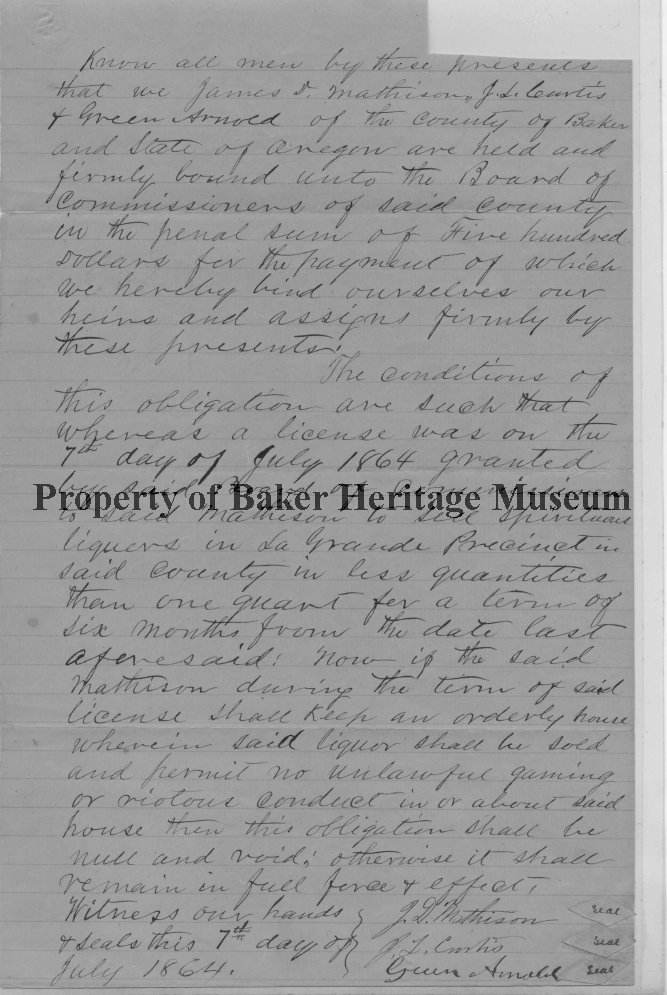 Know all men by these presents
that we James D. Mathison, J. L. Curtis
& Green Arnold of the County of Baker
and State of Oregon are held and
firmly bound unto the Board of
Commissioners of said county
in the penal sum of Five hundred
Dollars for the payment of which
we hereby bind ourselves our
heirs and assigns firmly by
these presents:
The conditions of
this obligation are such that
whereas a license was on the
7th day of July 1864 granted
by said Board of Commissioners
Property of Baker Heritage Museum
to said Mathison to sell spirituous
liquers in La Grande Precinct in
said county in less quantities
than one quart for a term of
six months from the date last
aforesaid: Now if the said
Mathison during the term of said
license shall keep an orderly house
wherein said liquor shall be sold
and permit no unlawful gaming
or riotous conduct in or about said
house then this obligation shall be
null and void; otherwise it shall
remain in full force & effect.
Witness our hands J. D. Mathison seal
& seals this 7th day of J. L. Curtis seal
July 1864. Green Arnold seal